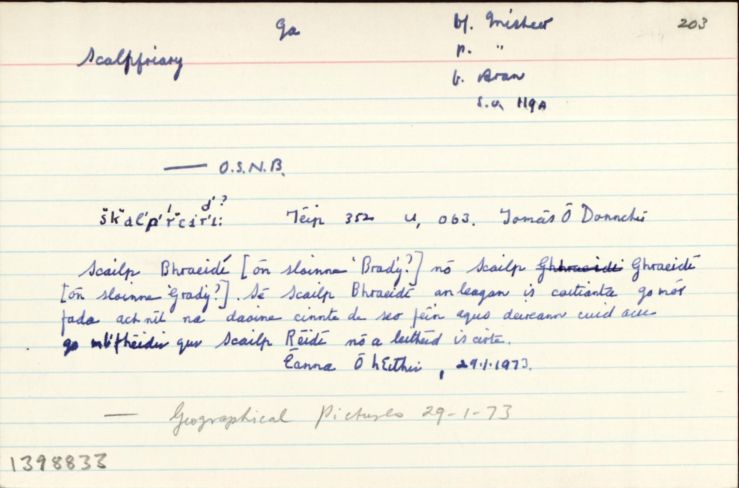 Ga bf. Inisheer 203
Scalpfriary p. "
b. Aran
S.O. 119A
— O.S.N.B.
Téip 352 U, 063. Tomás Ó Donnchú
Scailp Bhraeidí [ón sloinne 'Brady'?] nó Scailp Ghraeidí
[ón sloinne 'Grady'?]. Sé Scailp Bhraeidí an leagan is coitianta go mór
fada ach níl na daoine cinnte de seo féin agus deireann cuid acu
go mb'fhéidir gur Scailp Réidí nó a leithéid is cirte.
Éanna Ó hEithir, 29.1.1973.
— Geographical Pictures 29-1-73
1398833